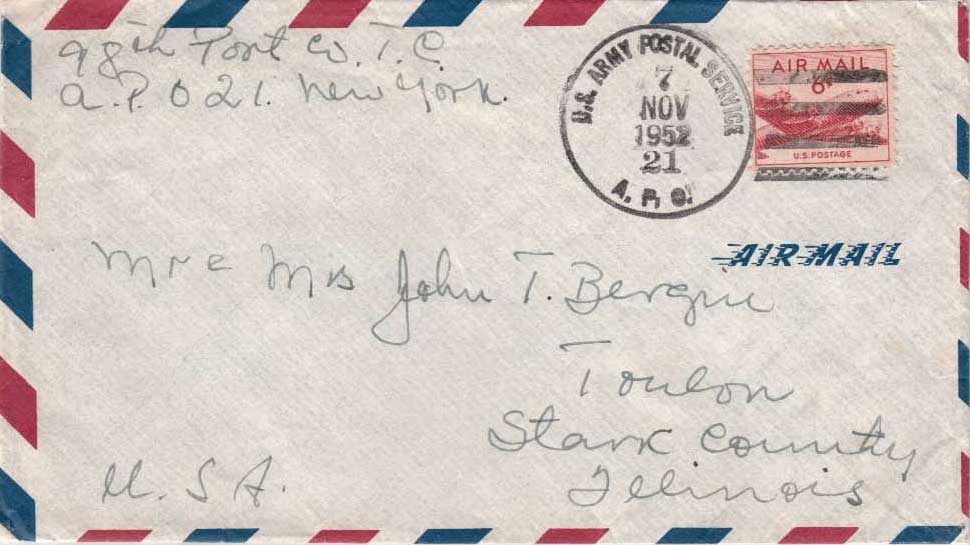 98th Port Co. T. C.
A.P.O 21. New York.
U.S. ARMY POSTAL SERVICE
7
NOV
1952
21
A. P. O.
AIR MAIL
6¢
U.S. POSTAGE
AIR MAIL
Mr & Mrs John T. Berquie
Toulon
Stark County
Illinois
U. S A.